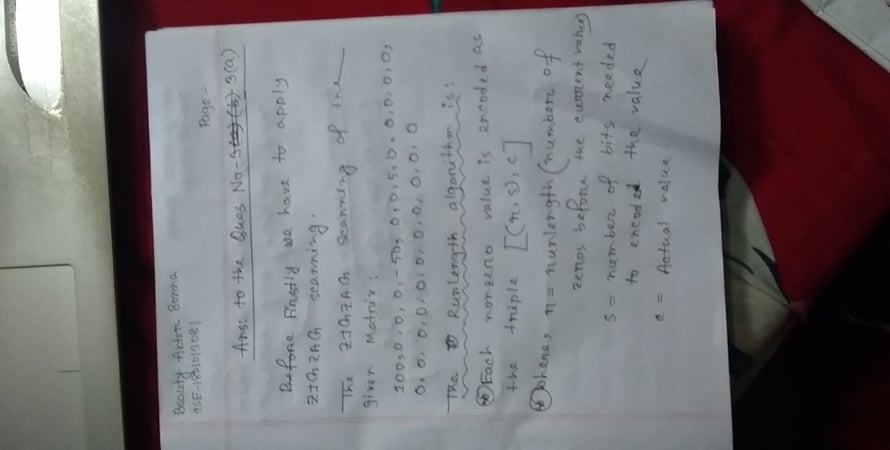 LENOVO
Beauty Akter Bonna
CSE-1801013081
Page -
Ans: to the Ques No-3(a) (b) 3(a)
Before Firstly we have to apply
ZIGZAG scanning.
The ZIGZAG Scanning of the
given Matrix:
100, 0, 0, 0, -50, 0, 0, 5, 0, 0, 0, 0, 0,
0, 0, 0, 0, 0, 0, 0, 0, 0, 0, 0
The Runlength algorithm is:
Each nonzero value is encoded as
the triple [(r, s), c]
Where, r = runlength (number of
zeros before the current value)
s = number of bits needed
to encoded the value
c = Actual value.